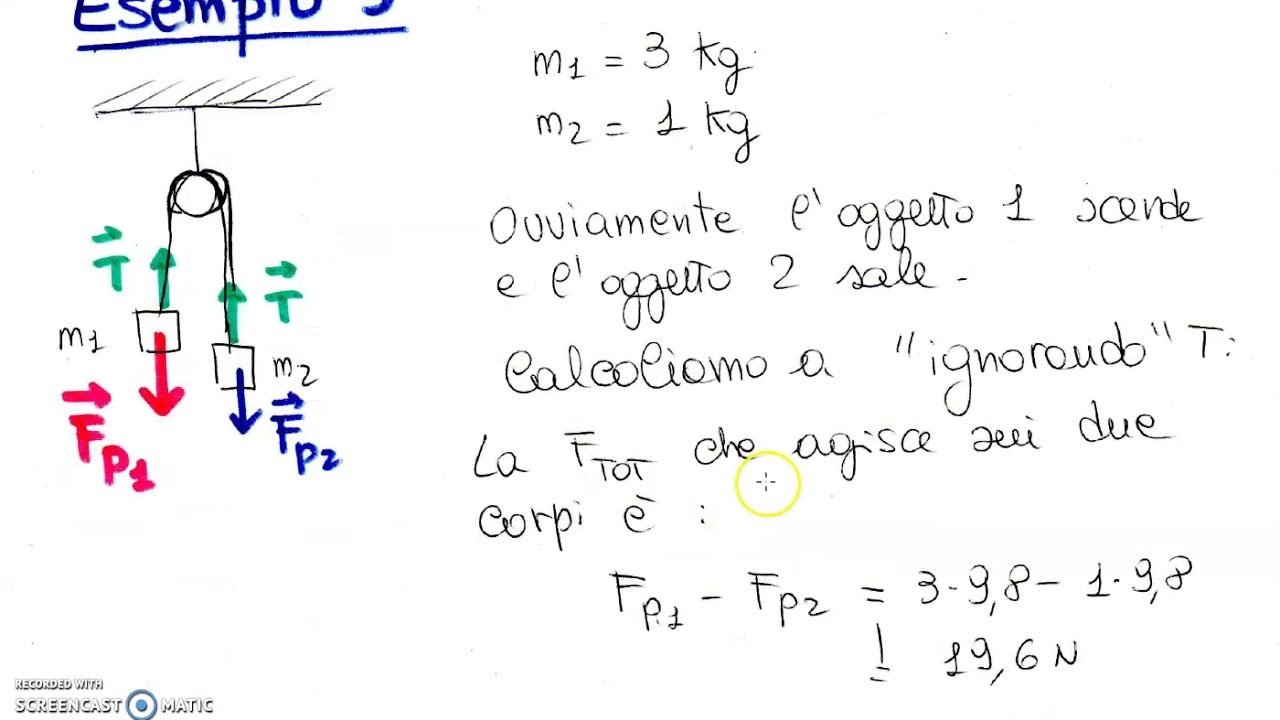 Esempio 3
m1 = 3 kg
m2 = 1 kg
Ovviamente l'oggetto 1 scende
e l'oggetto 2 sale.
T
T
m1
m2
Fp1
Fp2
Calcoliamo a "ignorando" T:
La FTOT che agisce sui due
corpi è :
Fp1 - Fp2 = 3·9,8 - 1·9,8
= 19,6 N
RECORDED WITH
SCREENCAST MATIC